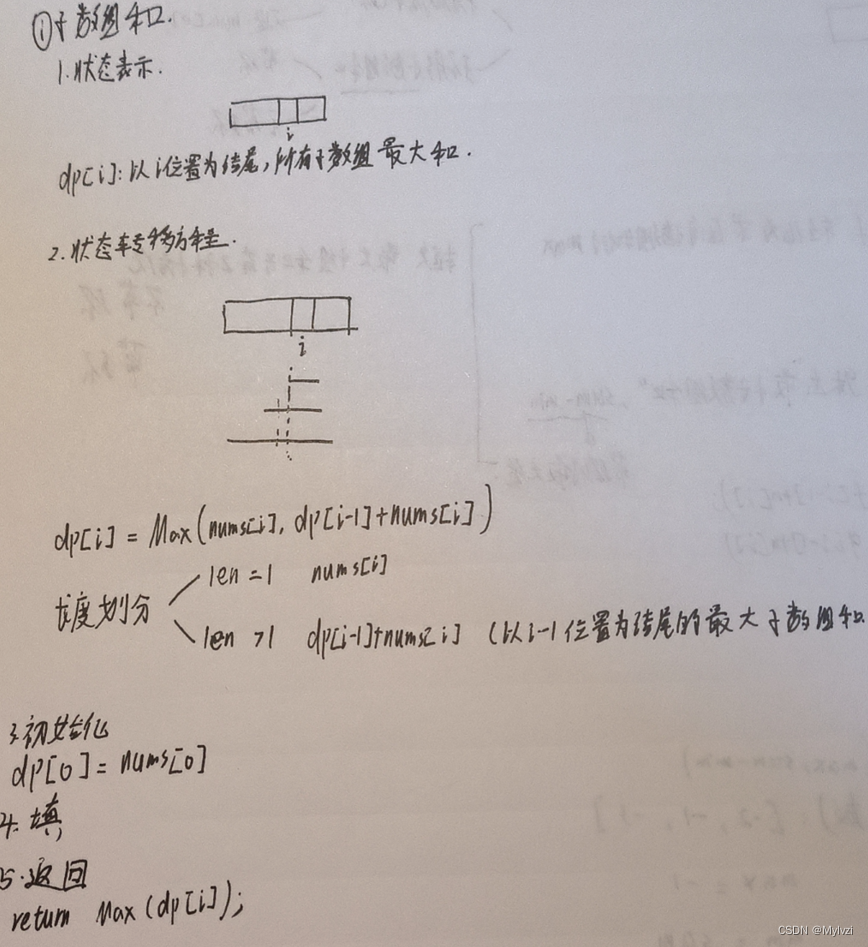 ①子数组和.
1.状态表示.
i
dp[i]:以i位置为结尾,所有子数组最大和.
2.状态转移方程.
i
dp[i] = Max(nums[i], dp[i-1]+nums[i])
len =1 nums[i]
长度划分
len >1 dp[i-1]+nums[i] (以i-1位置为结尾的最大子数组和
3.初始化
dp[0]=nums[0]
4.填
5.返回
return Max(dp[i]);
CSDN @Mylvzi